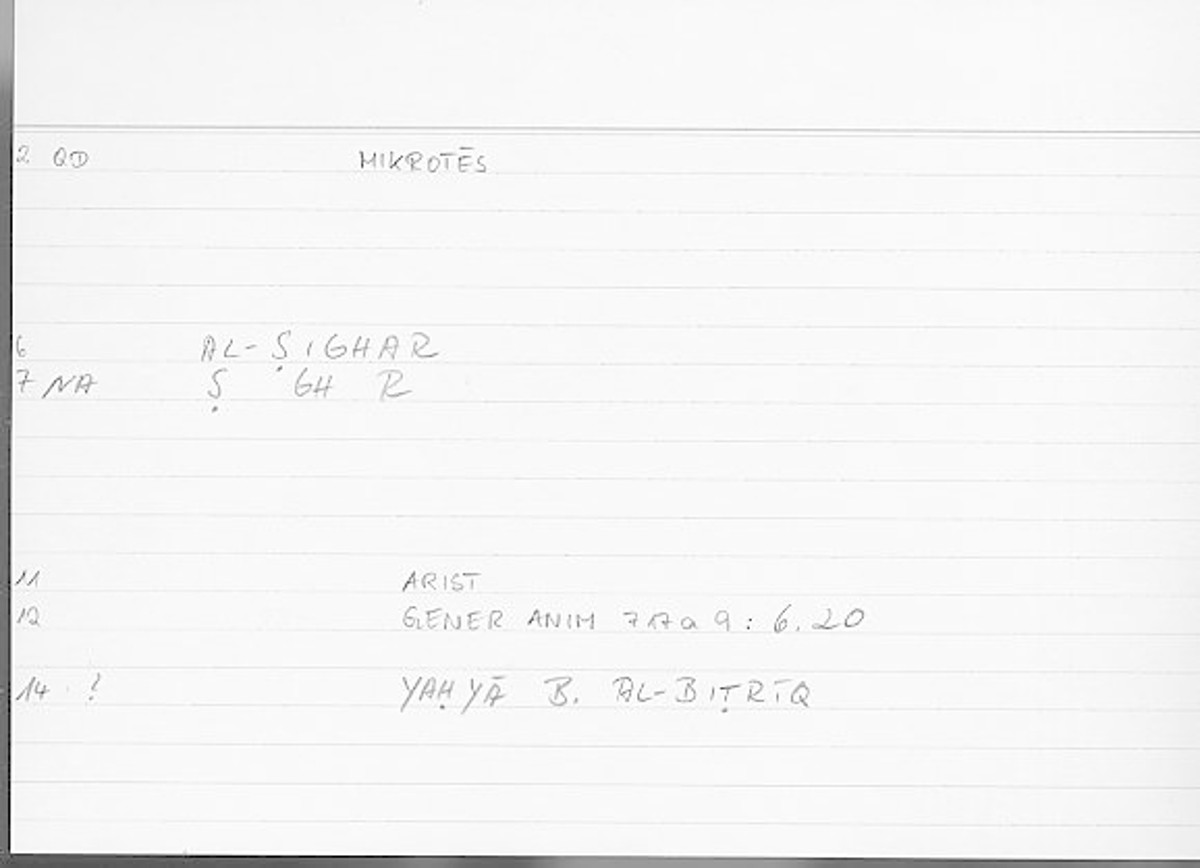 2 QD MIKROTĒS
6 AL-ṢIGHAR
7 NA Ṣ GH R
11 ARIST
12 GENER ANIM 717a 9 : 6.20
14 ? YAḤYĀ B. AL-BIṬRĪQ